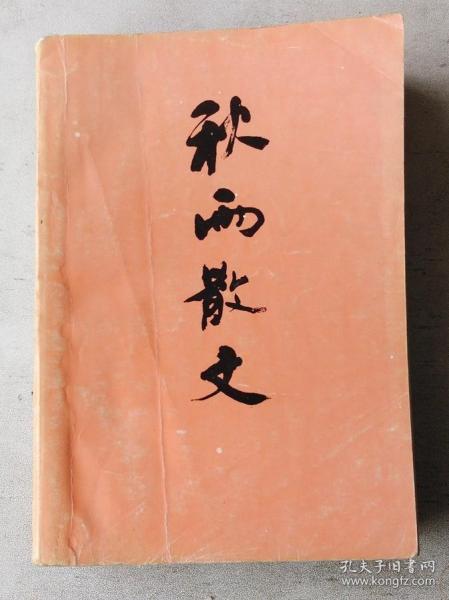 秋雨散文
孔夫子旧书网
www.kongfz.com